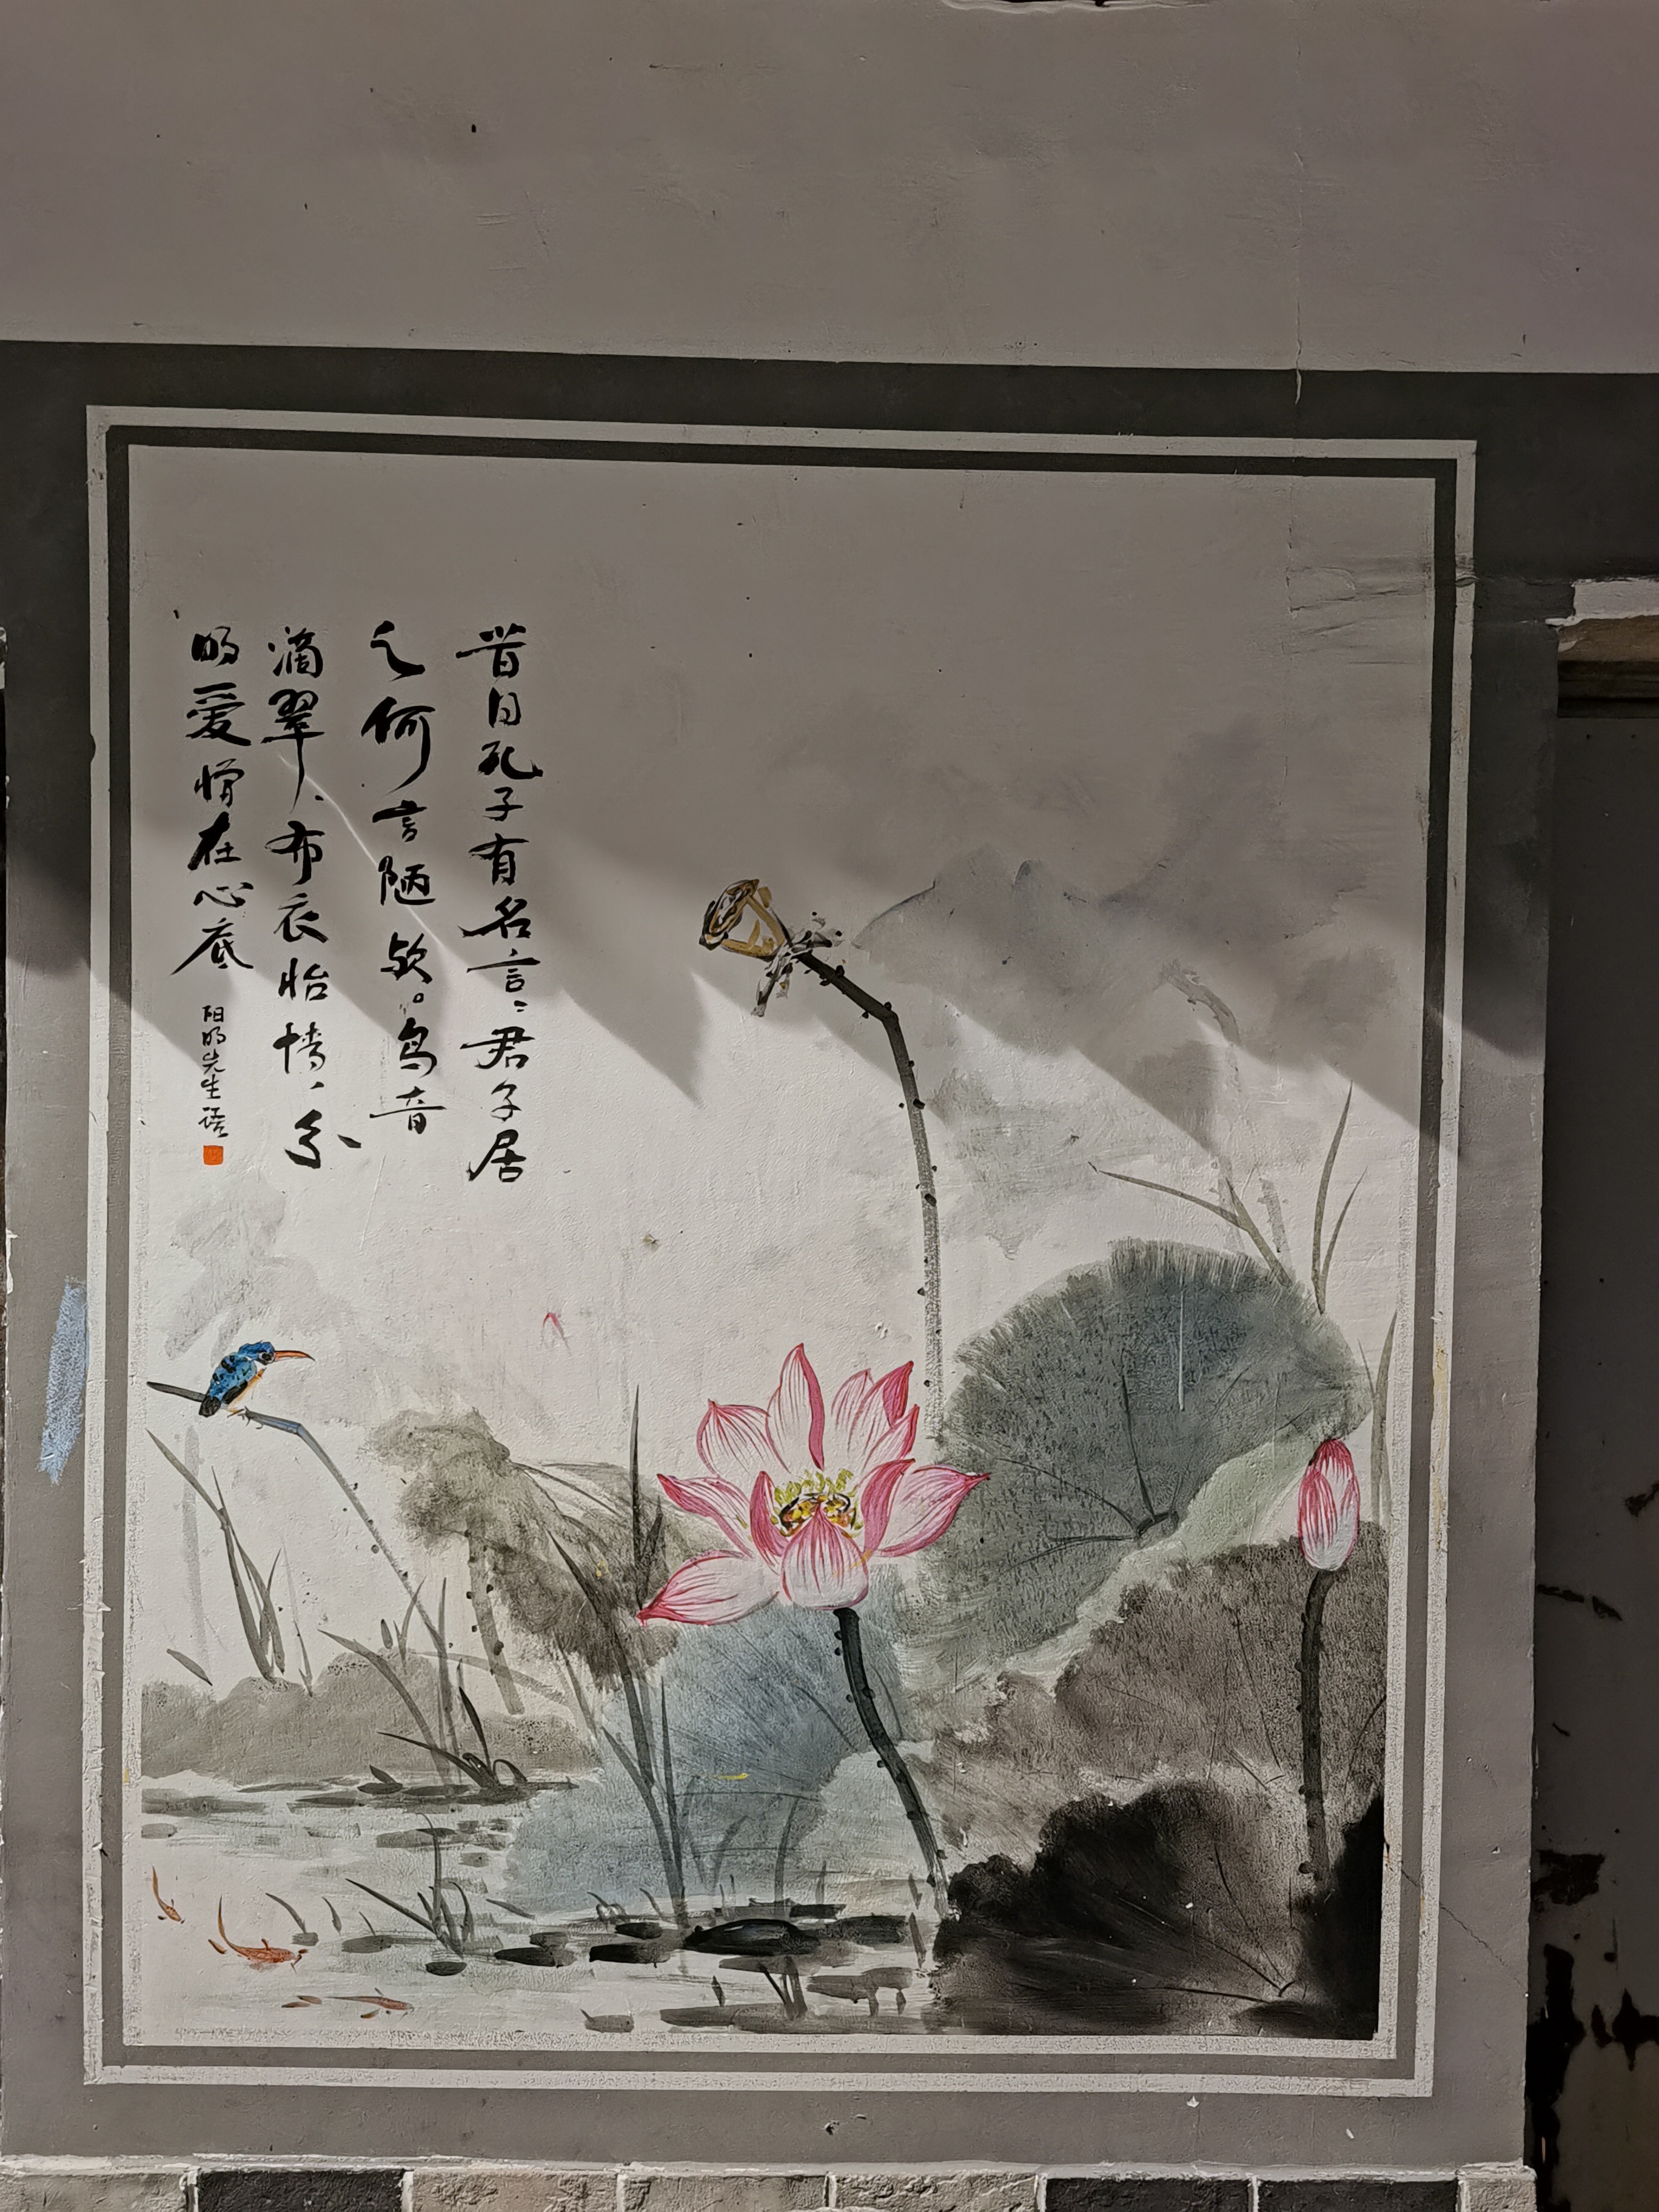 昔日孔子有名言：君子居
之何言陋欤。鸟音
滴翠、布衣怡情、分
明爱憎在心底
阳明先生语